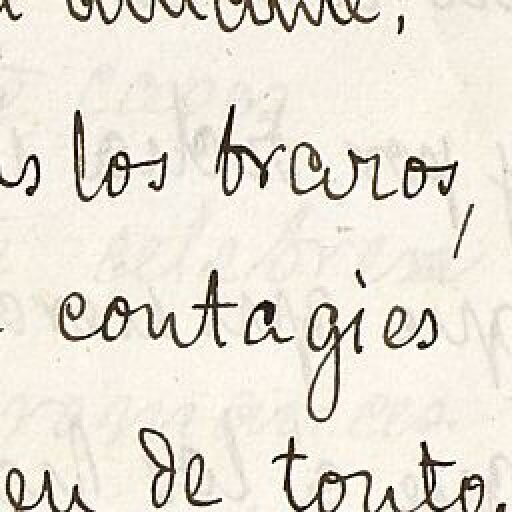 s los brazos,
contagies
en de tonto.